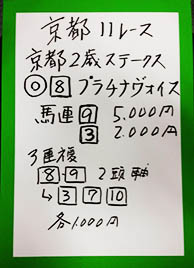 京都11レース
京都2歳ステークス
◎ 8 プラチナヴォイス
馬連 9 5.000円
3 2.000円
3連複
8-9 2頭軸
↳ 3 7 10
各1.000円